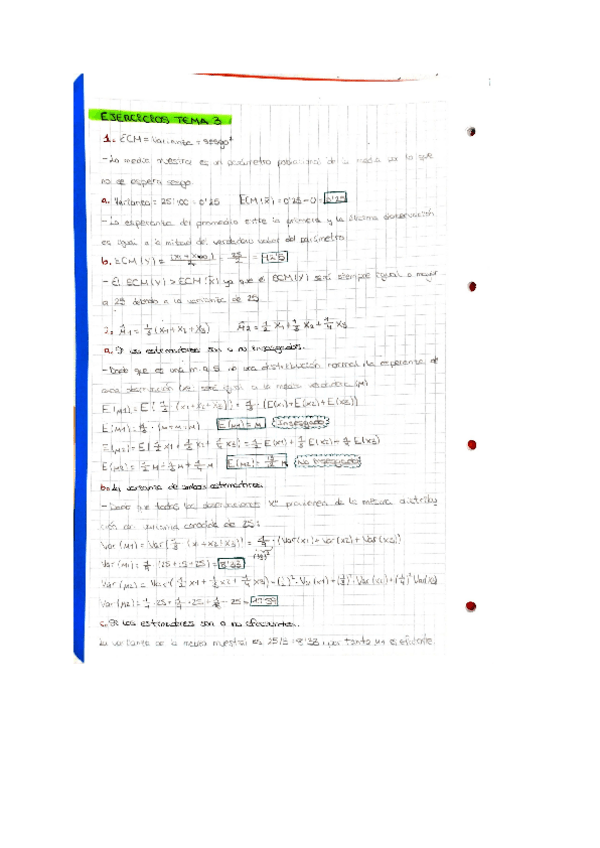 EJERCICIOS TEMA 3
1. ECM = Varianza + sesgo²
- La media muestral es un parámetro poblacional de la media por lo que
no se espera sesgo.
a. Varianza = 25/100 = 0'25 ECM(x̄) = 0'25 - 0 = 0'25
- La esperanza del promedio entre la primera y la última observación
es igual a la mitad del verdadero valor del parámetro
b. ECM (Y) = = 25/2 = 12'5
- El ECM(Y) > ECM(x̄) ya que el ECM(Y) será siempre igual o mayor
a 25 debido a la varianza de 25.
2. μ̂1 = 1/3 (X1 + X2 + X3) μ̂2 = 1/2 X1 + 1/3 X2 + 1/4 X3
a. Si los estimadores son o no insesgados.
- Dado que es una m.a.s. de una distribución normal, la esperanza de
cada observación será igual a la media verdadera (μ)
E(μ1) = E[1/3 (x1 + x2 + x3)] = 1/3 · (E(x1) + E(x2) + E(x3))
E(μ1) = 1/3 · (μ + μ + μ) E(μ1) = μ Insesgado
E(μ2) = E(1/2 x1 + 1/3 x2 + 1/4 x3) = 1/2 E(x1) + 1/3 E(x2) + 1/4 E(x3)
E(μ2) = 1/2 μ + 1/3 μ + 1/4 μ E(μ2) = 13/12 μ No Insesgado
b. La varianza de ambos estimadores.
- Dado que todas las observaciones "x" provienen de la misma distribu
ción con varianza conocida de 25:
Var (μ1) = Var[1/3 (x1 + x2 + x3)] = 1/9 · (Var(x1) + Var(x2) + Var(x3))
(1/3)²
Var (μ1) = 1/9 (25 + 25 + 25) = 8'33
Var (μ2) = Var(1/2 x1 + 1/3 x2 + 1/4 x3) = (1/2)² · Var(x1) + (1/3)² · Var(x2) + (1/4)² Var(x3)
Var (μ2) = 1/4 · 25 + 1/9 · 25 + 1/16 · 25 =
c. Si los estimadores son o no eficientes.
La varianza de la media muestral es 25/3 = 8'33, por tanto μ1 es eficiente.